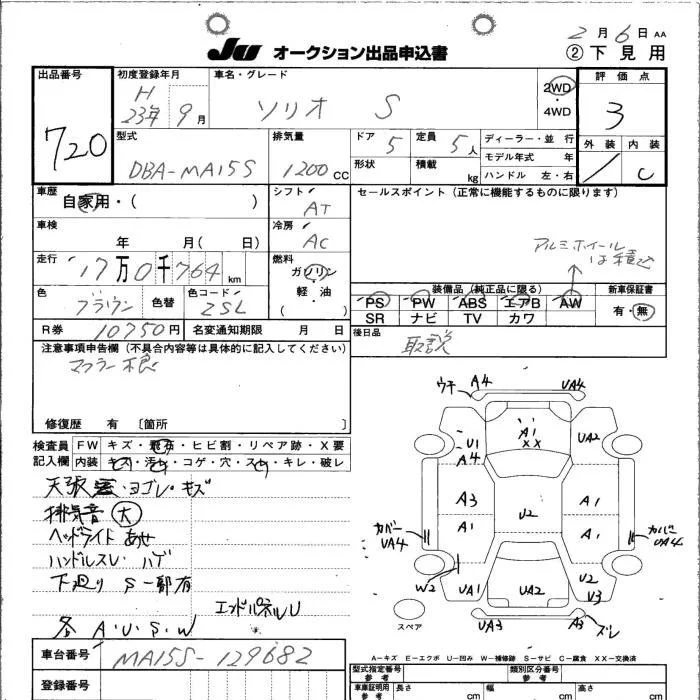 2月6日 AA
JU オークション出品申込書
②下見用
出品番号
720
初度登録年月
H
23年 9月
車名・グレード
ソリオ S
2WD
・
4WD
評価点
3
外装 内装
C
型式
DBA-MA15S
排気量
1200 CC
ドア 5
定員 5人
形状
積載 kg
ディーラー・並 行
モデル年式 年
ハンドル 左・右
車歴
自家用・( )
シフト
AT
セールスポイント(正常に機能するものに限ります)
アルミホイール
は積込
車検
年 月( 日)
冷房
AC
走行
17万0千764km
燃料
ガソリン
軽・油
( )
色
ブラウン
色替
色コード
ZSL
装備品(純正品に限る)
PS PW ABS エアB AW
SR ナビ TV カワ
新車保証書
有・無
R券 10750円
名変通知期限 月 日
後日品
取説
注意事項申告欄(不具合内容等は具体的に記入してください)
マフラー不良
修復歴 有 〔箇所 〕
検査員
記入欄
FW キズ・飛石・ヒビ割・リペア跡・X要
内装 キズ・汚れ・コゲ・穴・スレ・キレ・破レ
天張 ・ヨゴレ・キズ
排気音 大
ヘッドライト あせ
ハンドルスレ・ハゲ
下廻り S一部有
エンドパネルU
各 A・U・S・W
ウチ A4 UA4
U1 A4
A1 XX
UA2
A3
A1
U2
A1
A1
カバー UA4
カバー UA4
W2
UA1
UA2
U2
U3
UA3
A3 ズレ
スペア
A-キズ E-エクボ U-凹み W-補修跡 S-サビ C-腐食 XX-交換済
車台番号
MA15S-129682
登録番号
型式指定番号
類別区分番号
車庫証明用
参考
長さ
参考 cm
幅
cm
高さ
cm